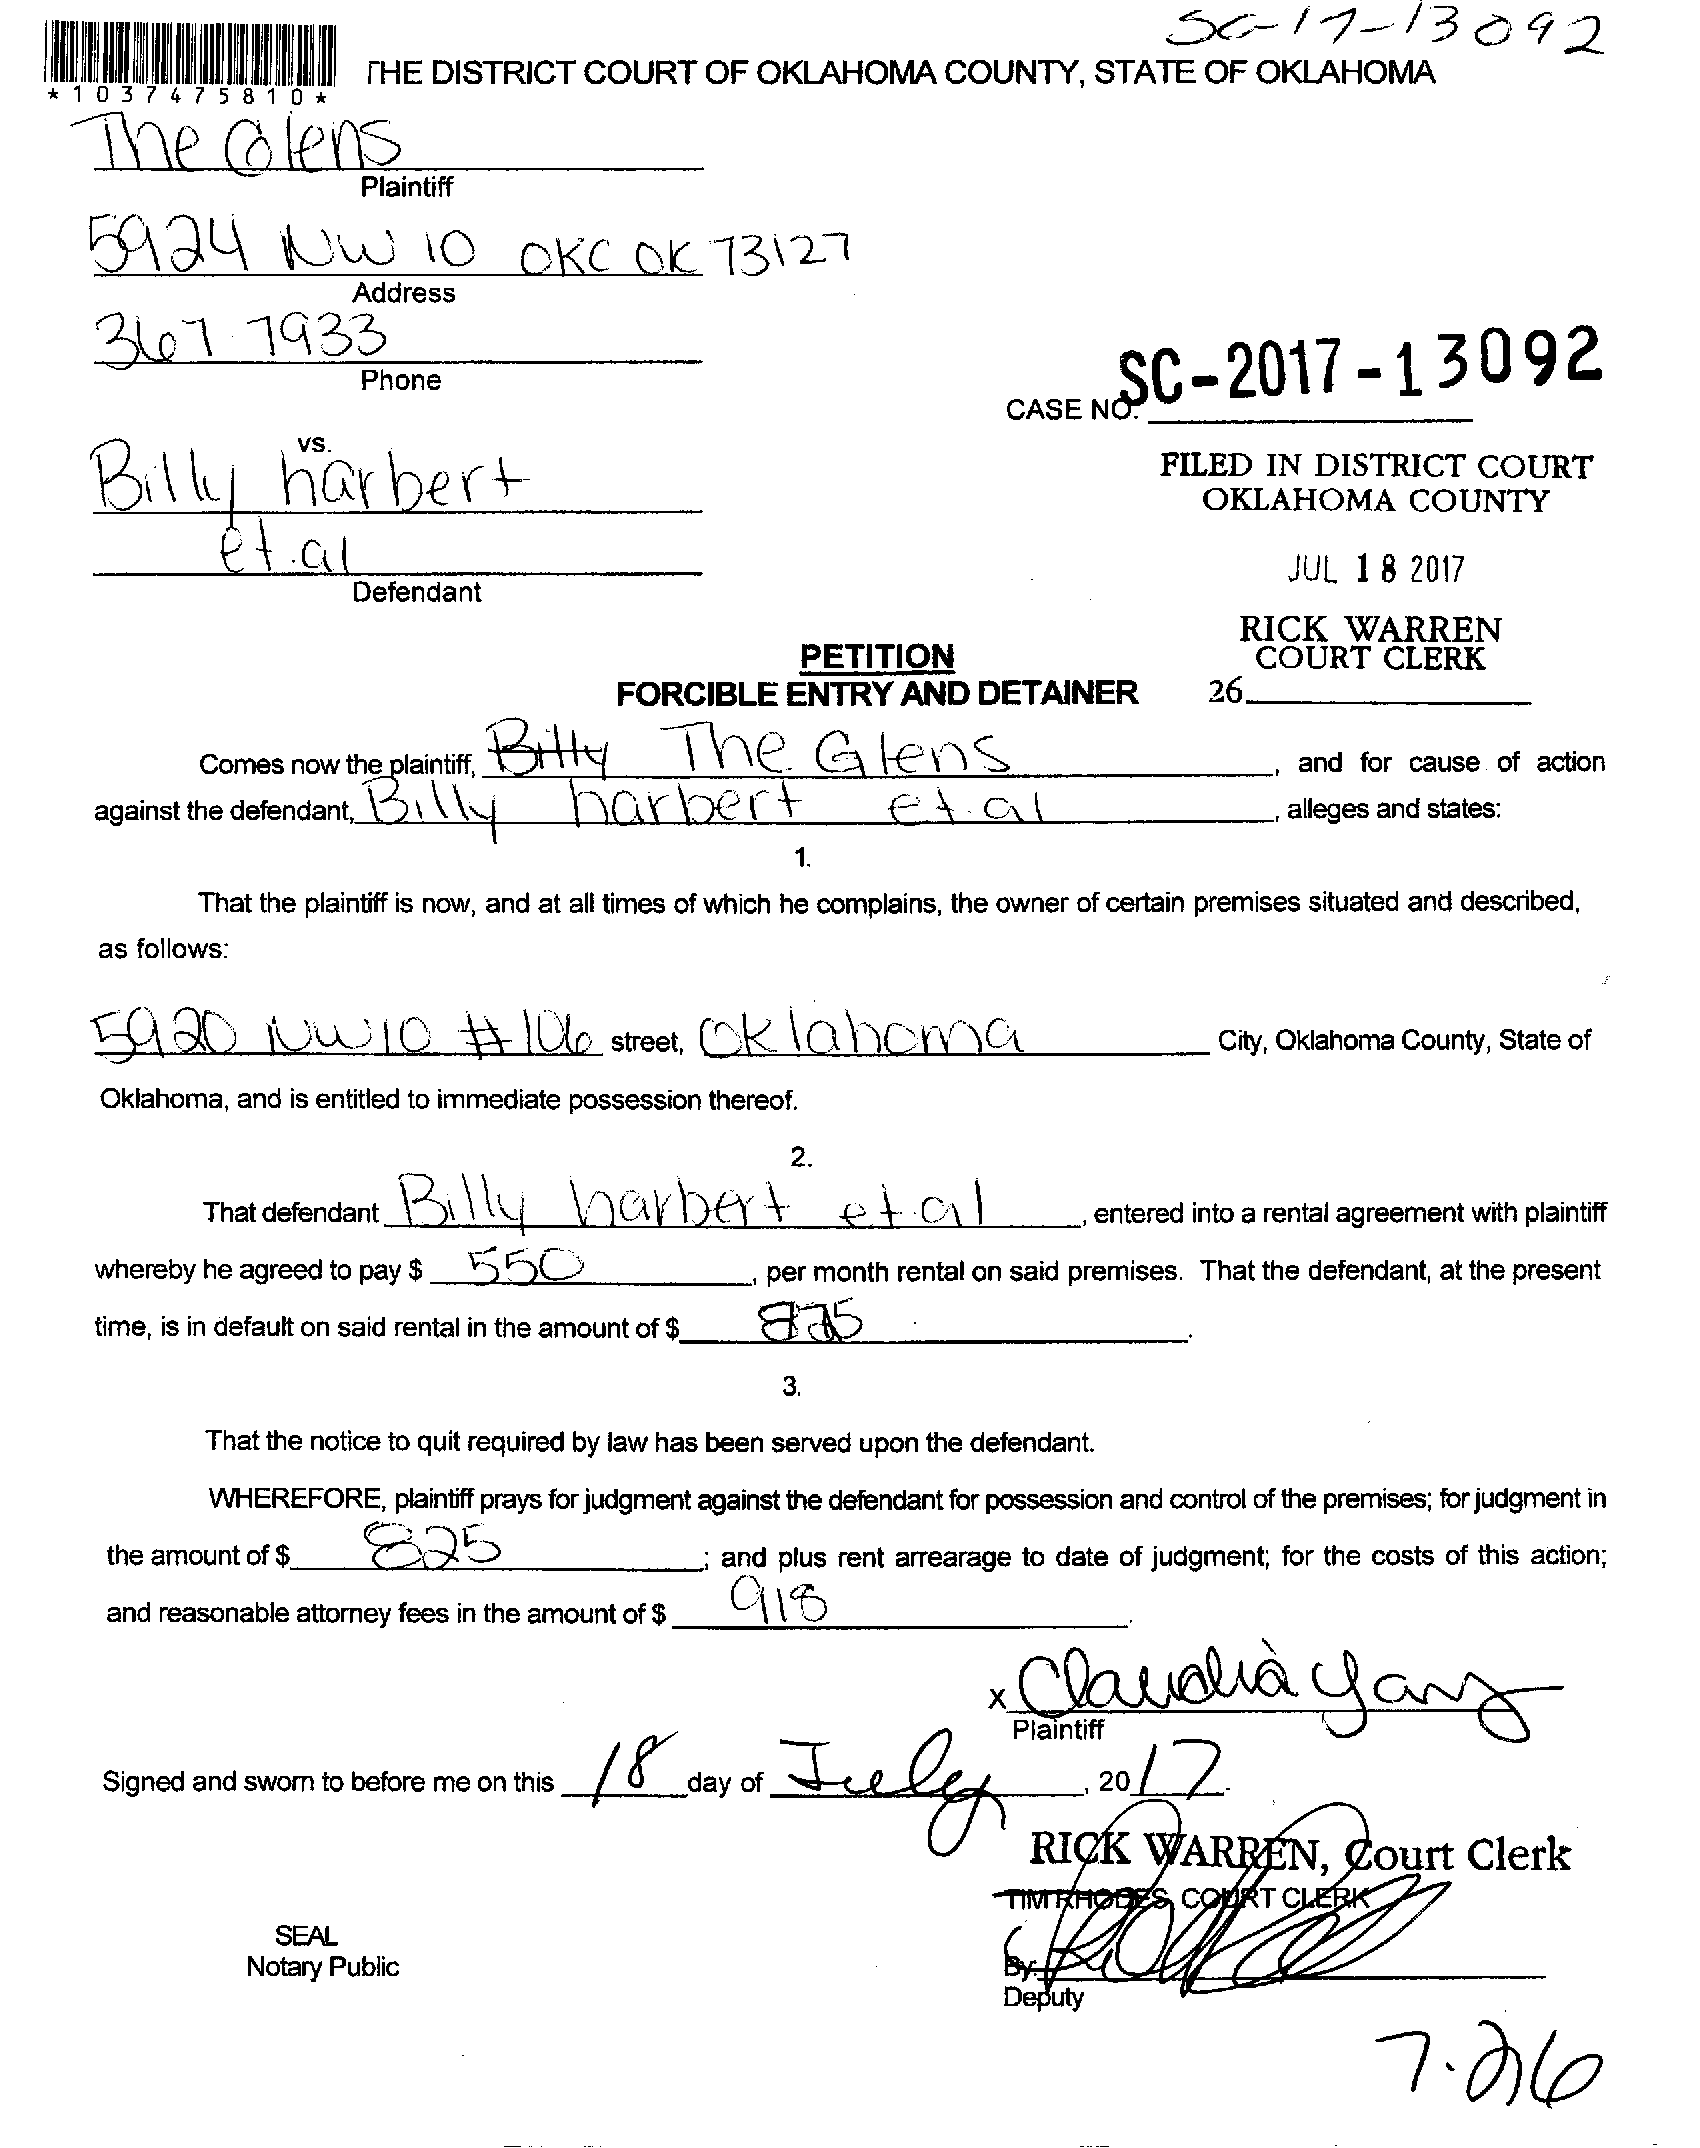 SC-17-13092
*1037475810*
THE DISTRICT COURT OF OKLAHOMA COUNTY, STATE OF OKLAHOMA
The Glens
Plaintiff
5924 NW 10 OKC OK 73127
Address
367 7933
Phone
CASE NO. SC-2017-13092
vs.
Billy harbert
et.al
Defendant
FILED IN DISTRICT COURT
OKLAHOMA COUNTY
JUL 18 2017
RICK WARREN
COURT CLERK
26
PETITION
FORCIBLE ENTRY AND DETAINER
Comes now the plaintiff, Billy The Glens, and for cause of action
against the defendant, Billy harbert et.al, alleges and states:
1.
That the plaintiff is now, and at all times of which he complains, the owner of certain premises situated and described,
as follows:
5920 NW 10 #106 street, Oklahoma City, Oklahoma County, State of
Oklahoma, and is entitled to immediate possession thereof.
2.
That defendant Billy harbert et.al, entered into a rental agreement with plaintiff
whereby he agreed to pay $ 550, per month rental on said premises. That the defendant, at the present
time, is in default on said rental in the amount of $ 825.
3.
That the notice to quit required by law has been served upon the defendant.
WHEREFORE, plaintiff prays for judgment against the defendant for possession and control of the premises; for judgment in
the amount of $ 825; and plus rent arrearage to date of judgment; for the costs of this action;
and reasonable attorney fees in the amount of $ 918.
x Claudia
Plaintiff
Signed and sworn to before me on this 18 day of July, 2017.
RICK WARREN, Court Clerk
TIM RHODES, COURT CLERK
SEAL
Notary Public
By:
Deputy
7.26